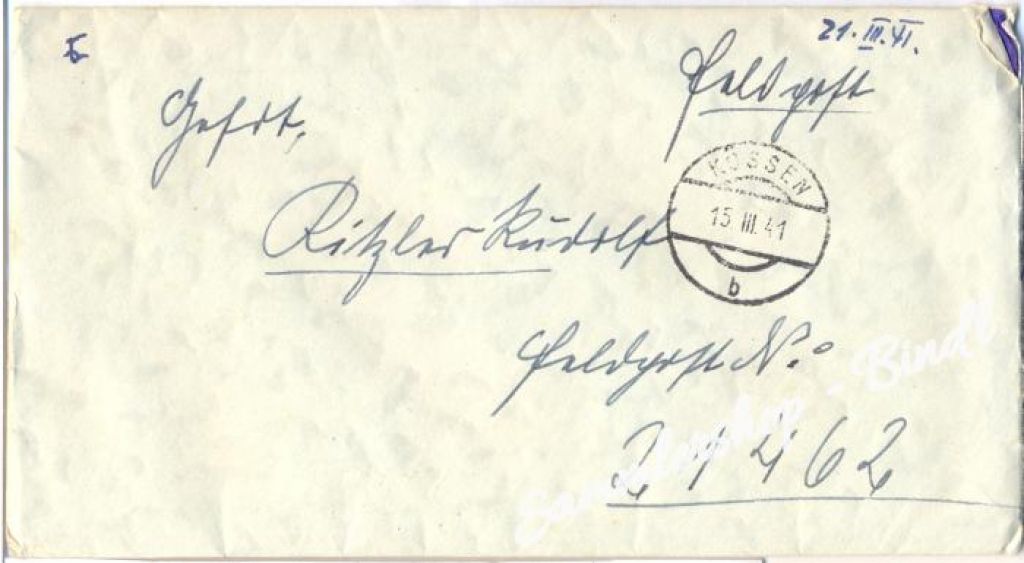 21. III. 41.
Feldpost
Gefrt.
KÖSSEN
15. III. 41
b
Ritzler Rudolf
Feldpost N.º
21462
Sammlershop - Bindl